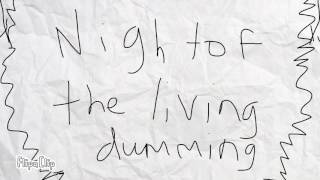 Nightof
the living
dumming
FlipaClip